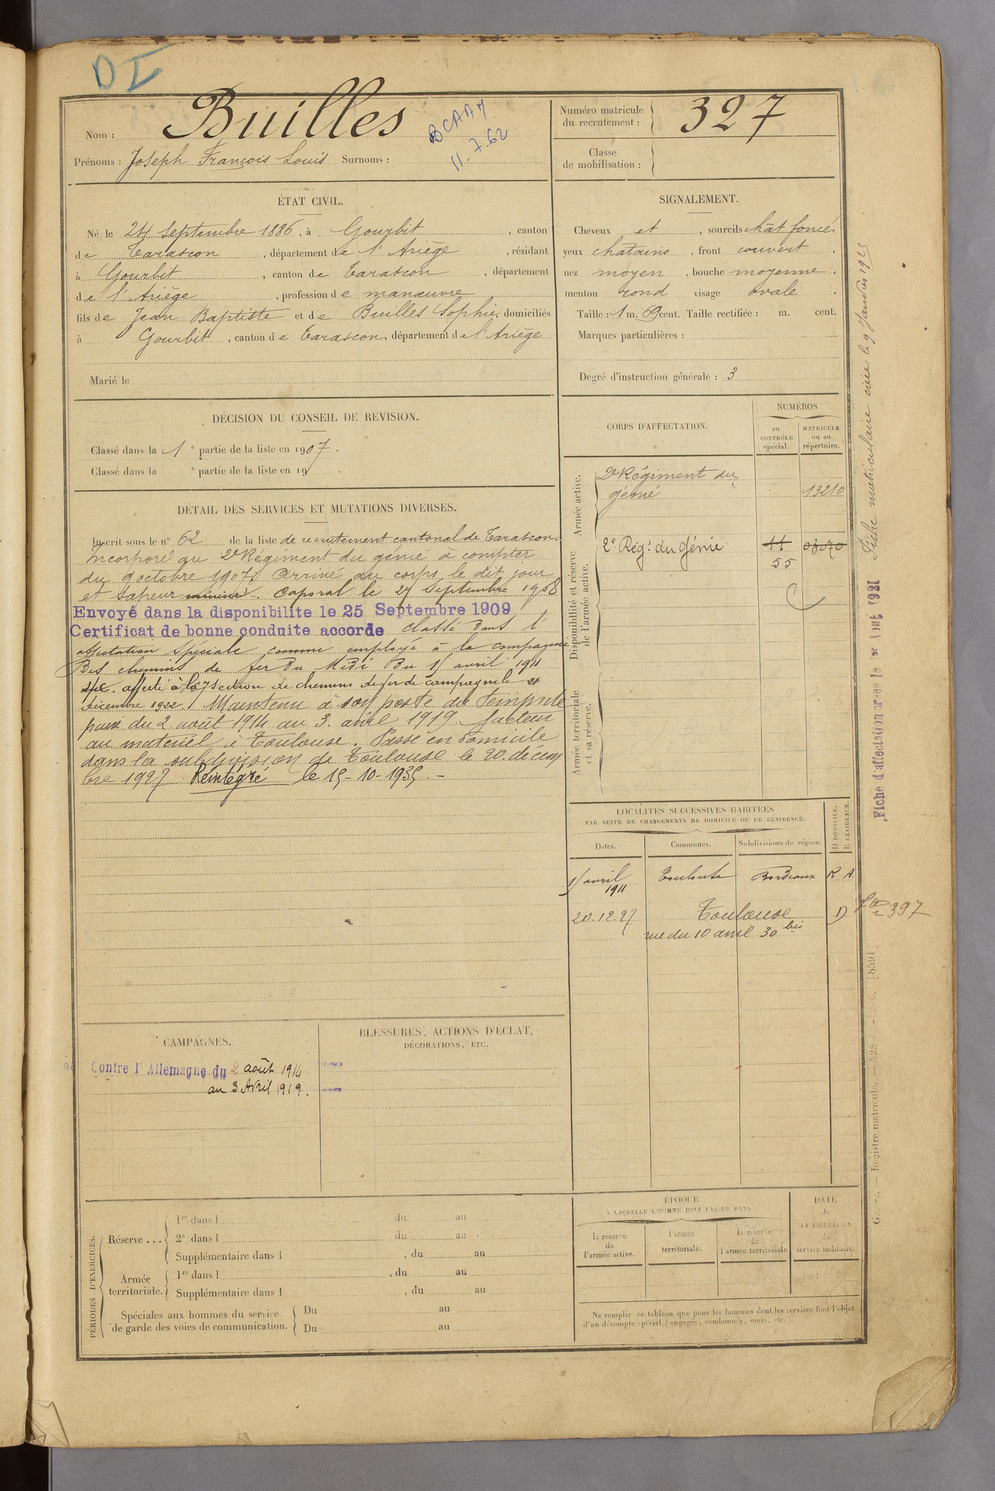 DI
Nom : Builles
BCAAM
11.7.62
Prénoms : Joseph François Louis Surnoms :
Numéro matricule du recrutement : 327
Classe de mobilisation :
ÉTAT CIVIL.
Né le 24 Septembre 1886, à Gourbit, canton
de Tarascon, département de l'Ariège, résidant
à Gourbit, canton de Tarascon, département
de l'Ariège, profession de manœuvre
fils de Jean Baptiste et de Builles Sophie, domiciliés
à Gourbit, canton de Tarascon, département de l'Ariège
Marié le
SIGNALEMENT.
Cheveux et, sourcils chat foncé,
yeux chatains, front couvert,
nez moyen, bouche moyenne,
menton rond visage ovale.
Taille : 1 m. 69 cent. Taille rectifiée : m. cent.
Marques particulières :
Degré d'instruction générale : 3
DÉCISION DU CONSEIL DE REVISION.
Classé dans la 1e partie de la liste en 1907.
Classé dans la e partie de la liste en 19 .
DÉTAIL DES SERVICES ET MUTATIONS DIVERSES.
Inscrit sous le n° 62 de la liste de recrutement cantonal de Tarascon.
Incorporé au 2e Régiment du génie à compter
du 9 octobre 1907. Arrivé au corps le dit jour
et sapeur mineur. Caporal le 24 Septembre 1908
Envoyé dans la disponibilité le 25 Septembre 1909
Certificat de bonne conduite accordé Classé dans l'
affectation spéciale comme employé à la compagnie
Des chemins de fer du Midi Du 1 avril 1911
affecté à la 7 section de chemins de fer de campagne le
décembre 1922. Maintenu à son poste du temps de
paix du 2 août 1914 au 3 avril 1919. facteur
au matériel à Toulouse. Passé en domicile
dans la subdivision de Toulouse le 20 décem
bre 1927 Réintégré le 15-10-1935.-
CORPS D'AFFECTATION.
NUMÉROS
au CONTRÔLE spécial.
MATRICULE ou au répertoire.
Armée active.
2e Régiment du génie
13210
Disponibilité et réserve de l'armée active.
2e Régt du Génie
11
55
Armée territoriale et sa réserve.
LOCALITÉS SUCCESSIVES HABITÉES
PAR SUITE DE CHANGEMENTS DE DOMICILE OU DE RÉSIDENCE.
Dates. Communes. Subdivisions de région. D DOMICILE. R RÉSIDENCE.
1 avril 1911 Toulouse Bordeaux R A
20.12.27 Toulouse D
rue du 10 avril 30 bis
397
CAMPAGNES.
Contre l'Allemagne du 2 août 1914
au 3 Avril 1919.
BLESSURES, ACTIONS D'ÉCLAT,
DÉCORATIONS, ETC.
PÉRIODES D'EXERCICES.
Réserve ...
1re dans l du au
2e dans l du au
Supplémentaire dans l , du au
Armée territoriale.
1re dans l , du au
Supplémentaire dans l , du au
Spéciales aux hommes du service de garde des voies de communication.
Du au
Du au
ÉPOQUE
À LAQUELLE L'HOMME DOIT PASSER DANS
la réserve de l'armée active.
l'armée territoriale.
la réserve de l'armée territoriale
DATE de LA LIBÉRATION du service militaire.
Ne remplir ce tableau que pour les hommes dont les services font l'objet
d'un décompte spécial (engagés, condamnés, omis, etc.).
Fiche matriculaire créée le 9 Janvier 1923
Fiche d'affectation créée le 1er Août 1921
Registre matricule.